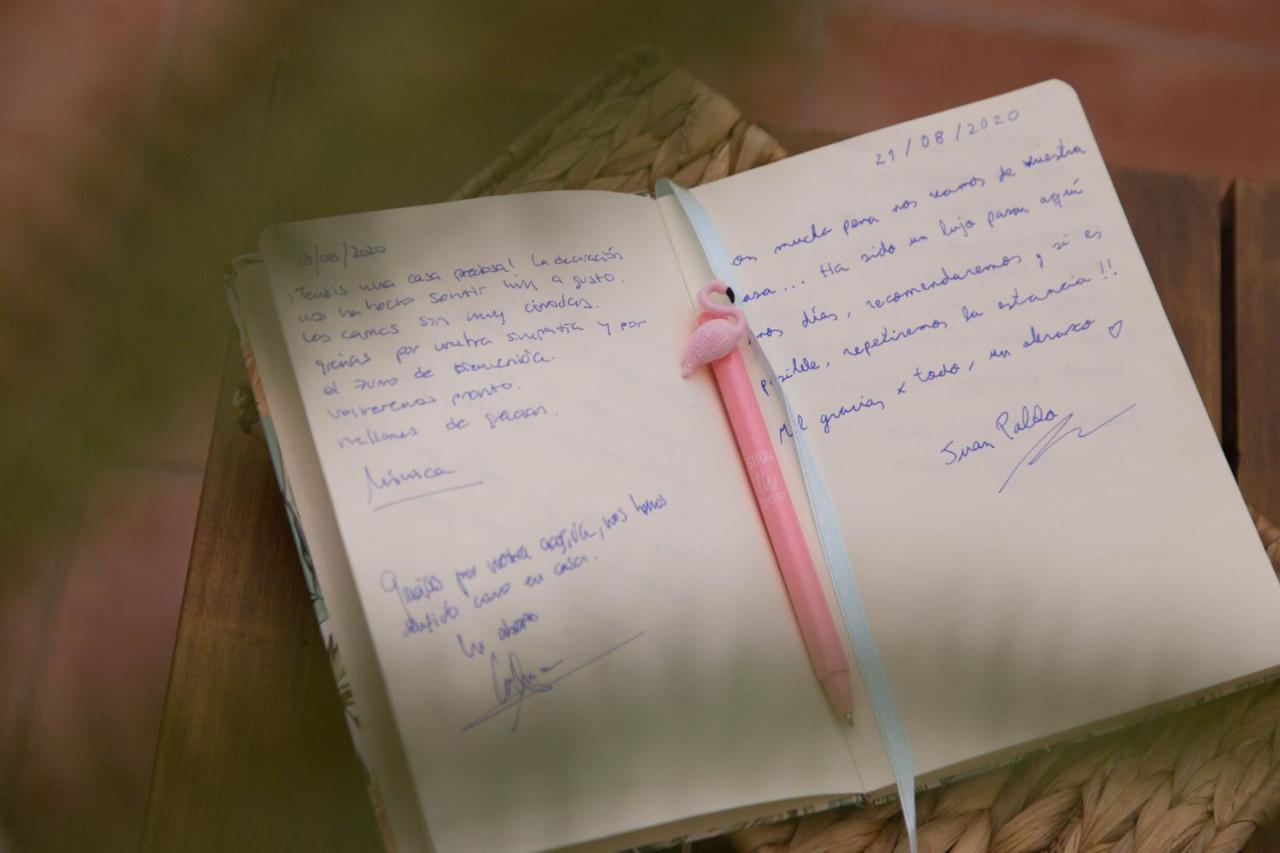 18/08/2020
¡Tenéis una casa preciosa! La decoración
nos ha hecho sentir muy a gusto.
Las camas son muy cómodas.
gracias por vuestra simpatía y por
el zumo de bienvenida.
volveremos pronto.
millones de gracias.
Mónica
Gracias por vuestra acogida, nos hemos
sentido como en casa.
Un abrazo
21/08/2020
on mucha pena nos vamos de vuestra
asa... Ha sido un lujo pasar aquí
nos días, recomendaremos y si es
posible, repetiremos la estancia!!
Mil gracias x todo, un abrazo ♡
Juan Pablo